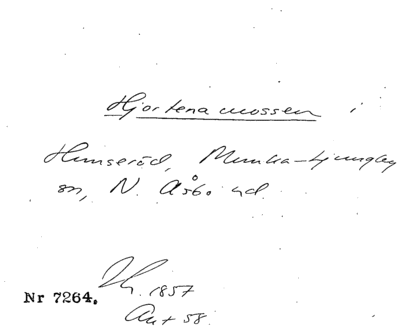 Hjortenamossen i
Hunseröd, Munka-Ljungby
sn, N. Åsbo hd.
Nr 7264.
1857
Ant 58.